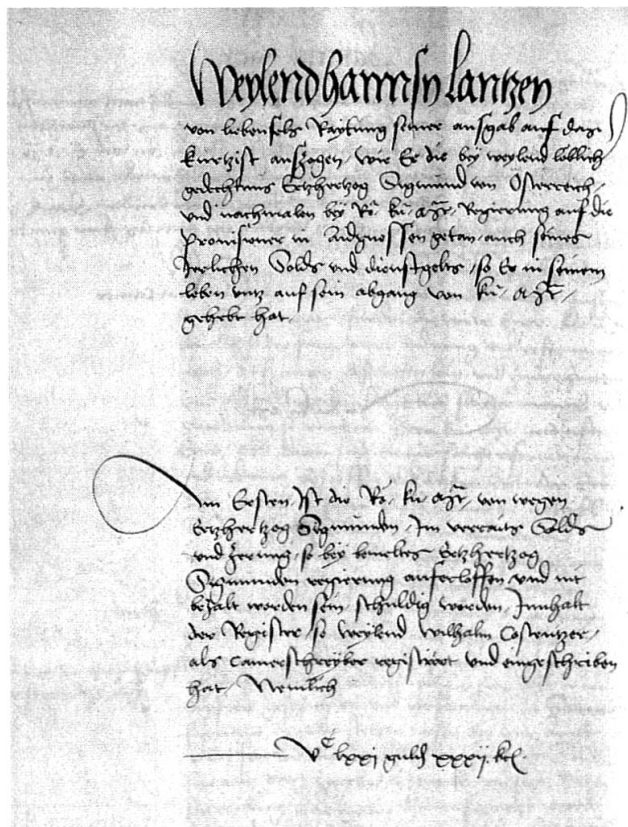 Weylend hannsn lantzen
von liebenfels Raytung seiner ausgab auf das
kurtzist auszogen, wie Er die bey weylend loblich
gedechtnus Ertzhertzog Sigmund von Österreich,
und nachmalen bey Rö. kü. Mt. Regierung auf die
provisioner in Aidgnossen getan, auch seines
Jerlichen Solds und dienstgelts, so Er in seinem
leben untz auf sein abgang von kü. Mt.
gehebt hat.
Im Ersten, Ist die Rö. kü. Mt. von wegen
Ertzhertzog Sigmunden, Im verraits Solds
und Zerung, so bey bemeltes Ertzhertzog
Sigmunden regierung aufferloffen, und nit
bezalt worden sein, schuldig worden, Innhalt
der Register, so weylend wilhalm Costentzer,
als Camerschreyber registriert und eingeschriben
hat, Nemlich
vc lxxj guldn xxxij kr.